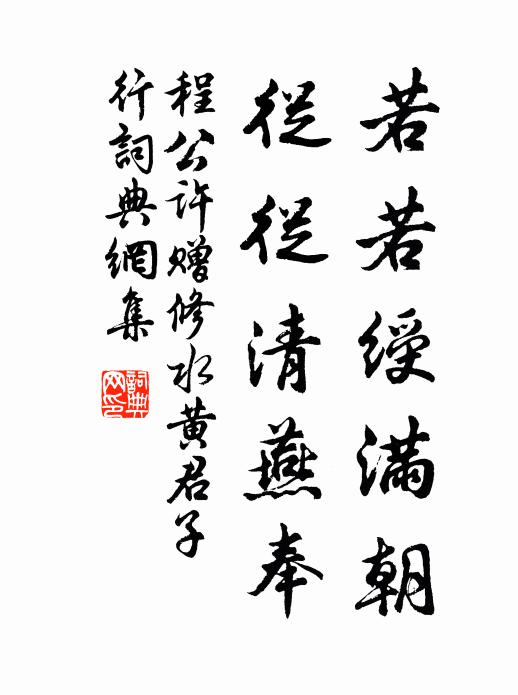 若若綬滿朝
從從清燕奉
程公許贈修水黄君子
行詞典網集
詞典
网印